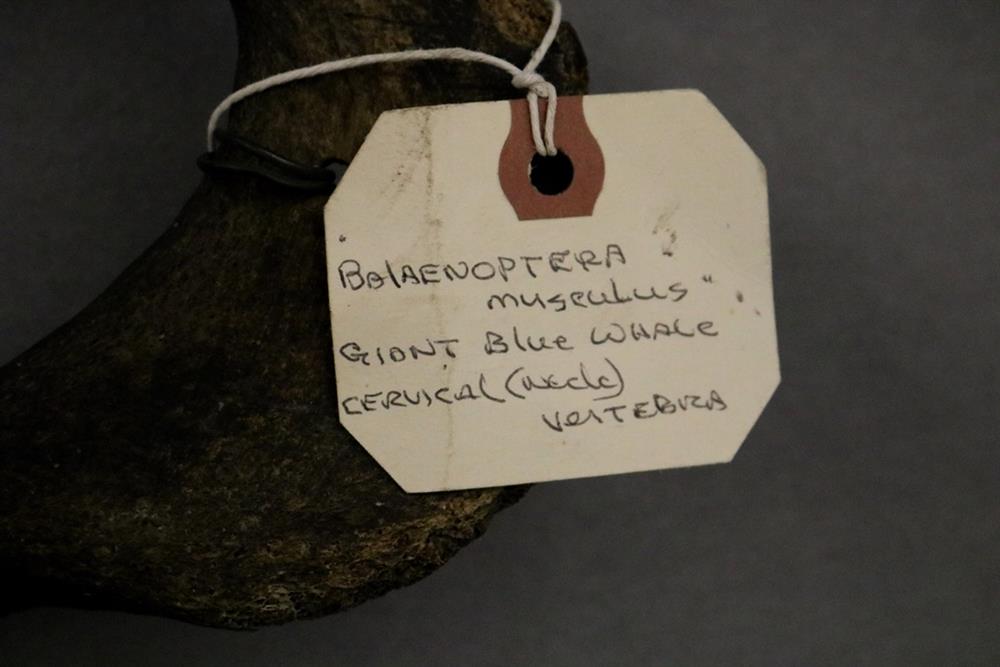 "BALAENOPTERA
musculus"
GIANT Blue WHALE
CERVICAL (neck)
VERTEBRA